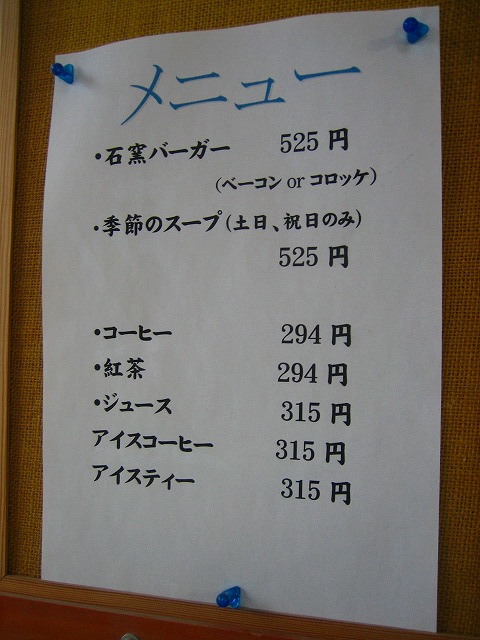 メニュー
・石窯バーガー 525 円
(ベーコン or コロッケ)
・季節のスープ(土日、祝日のみ)
525 円
・コーヒー 294 円
・紅茶 294 円
・ジュース 315 円
アイスコーヒー 315 円
アイスティー 315 円